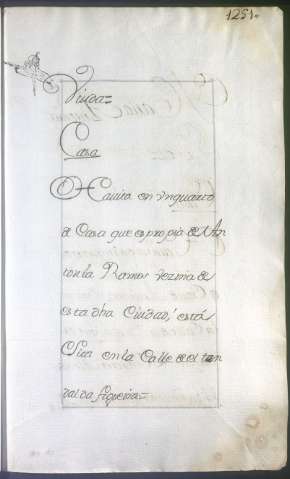 1251.
Viuda=
Casa
Havita en un quarto
de Casa que es propia de An
tonia Ramos vezina de
esta dha Ciudad, está
Sita en la Calle de el
de figueroa=